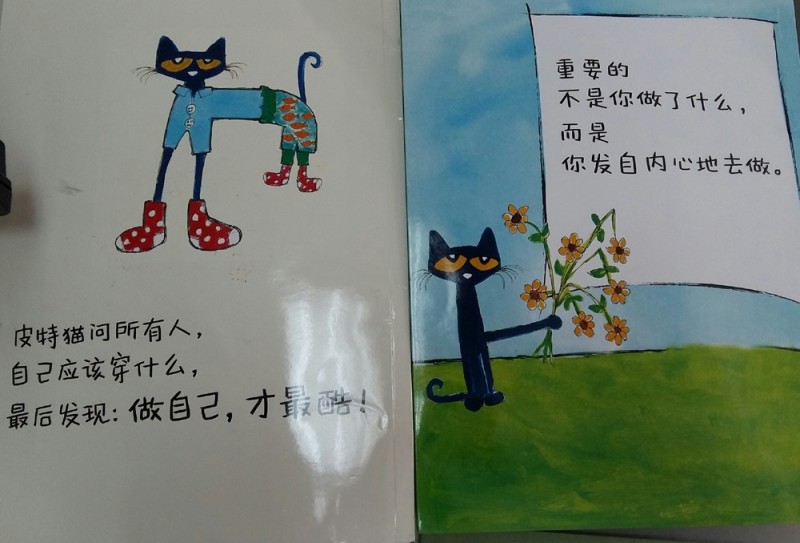 皮特猫问所有人，
自己应该穿什么，
最后发现：做自己，才最酷！
重要的
不是你做了什么，
而是
你发自内心地去做。